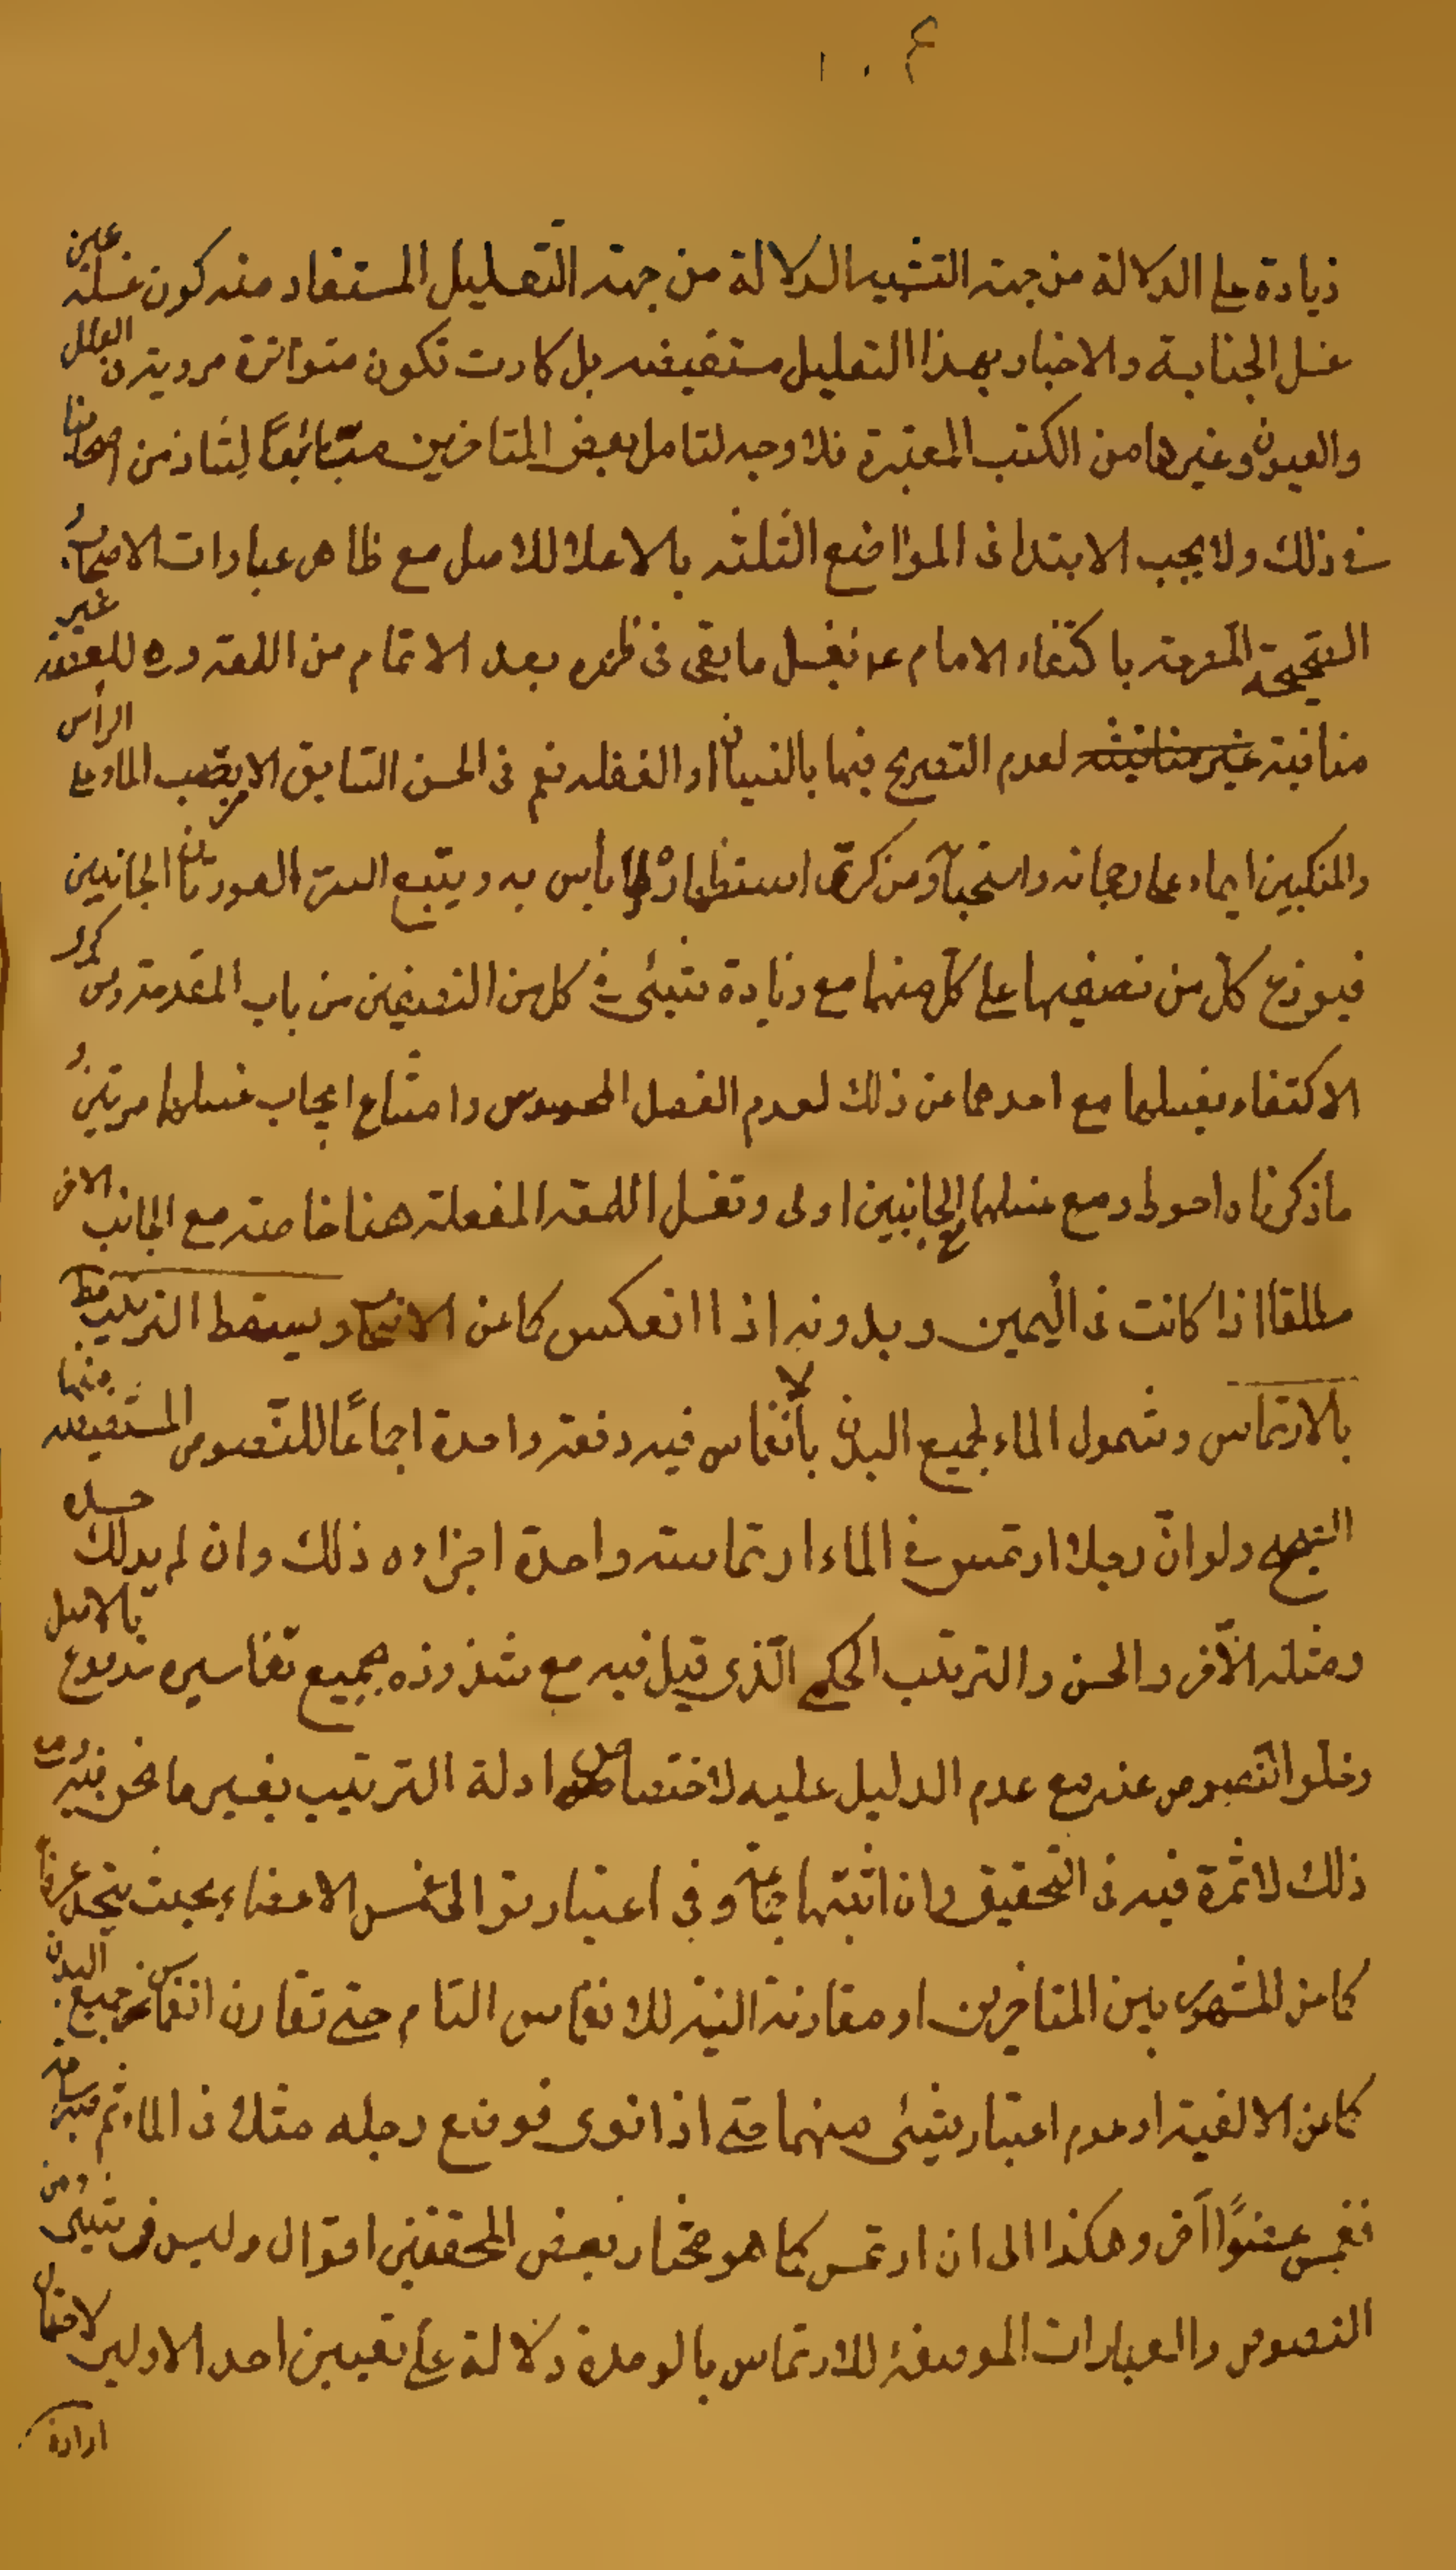 ١٠٤
زيادة على الدلالة من جهة التشبيه الدلالة من جهة التعليل المستفاد منه كون غسله عين
غسل الجنابة والاخبار بهذا التعليل مستفيضه بل كادت تكون متواترة مروية فى العلل
والعيون وغيرها من الكتب المعتبرة فلا وجه لتامل بعض المتاخرين متابعًا لشاذ من اصحابنا
فى ذلك ولا يجب الابتدا فى المواضع الثلثه بالاعلا للاصل مع ظاهر عبارات الاصحاب و
الصحيحة المصرحة باكتفاء الامام ع بغسل ما بقى فى ظهره بعد الاتمام من اللمعه وره للعصمه غير
منافية لعدم التصريح فيها بالنسيان او الغفله نعم فى الحسن السابق الامر بصب الماء على الراس
والمنكبين ايماء على رجحانه واستحبابه ومن تركه استظهارًا لا باس به ويتبع السرة العورتان الجانبين
فيوزع كل من نصفيهما على كل منهما مع زيادة شئ فى كل من النصفين من باب المقدمة
الاكتفاء بغسلهما مع احدهما عن ذلك لعدم الفصل المحسوس وامتناع ايجاب غسلهما مرتين و
ما ذكرناه احوط ومع غسلهما مع الجانبين اولى وتغسل اللمعه المغفلة هنا خاصة مع الجانب الاخر
مطلقا اذا كانت فى اليمين وبدونه اذا انعكس كما عن الاصحاب ويسقط الترتيب
بالارتماس وشمول الماء لجميع البدن بانغماس فيه دفعة واحدة اجماعًا للنصوص المستفيضه منها
الصحيح ولو ان رجلا ارتمس فى الماء ارتماسة واحدة اجزاءه ذلك وان لم يدلك جسده
ومثله الآخر والحسن والترتيب الحكمى الذى قيل فيه مع شذوذه بجميع تفاسيره مدفوع بالاصل
وخلو النصوص عنه مع عدم الدليل عليه لاختصاص ادلة الترتيب بغير ما نحن فيه ومع
ذلك لا ثمرة فيه فى التحقيق وان اثبتها جماعة وفى اعتبار توالى غمس الاعضاء بحيث يتحد عرفًا
كما عن المشهور بين المتاخرين او مقارنة النية للانغماس التام حتى تقارن انغماس جميع البدن
كما عن الالفية او عدم اعتبار شئ منهما حتى اذا نوى فوضع رجله مثلا فى الماء ثم صبر ساعة
فغمس عضوًا آخر وهكذا الى ان ارتمس كما هو مختار بعض المحققين اقوال وليس فى شئ من
النصوص والعبارات الموصفة للارتماس بالوحدة دلالة على تعيين احد الاولين لاحتمال
ارادة